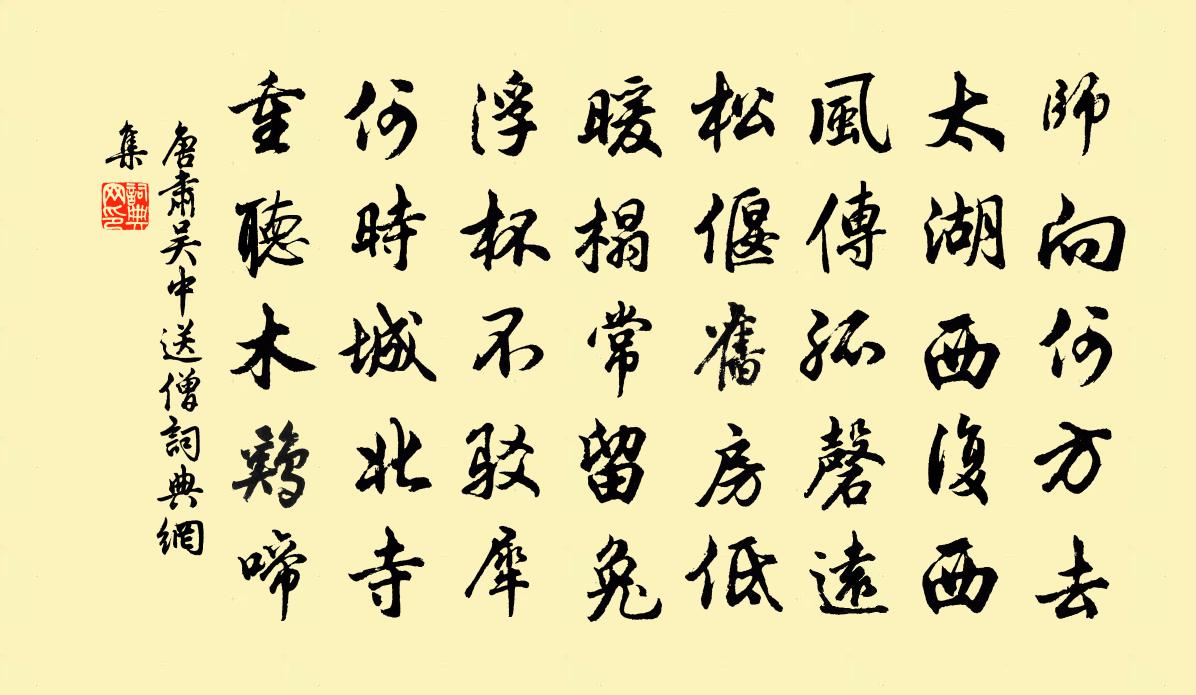 師向何方去
太湖西復西
風傳孤磬遠
松偃舊房低
暖榻常留兔
浮杯不駮犀
何時城北寺
重聽木鷄啼
唐肅吳中送僧詞典網
集
詞典網印